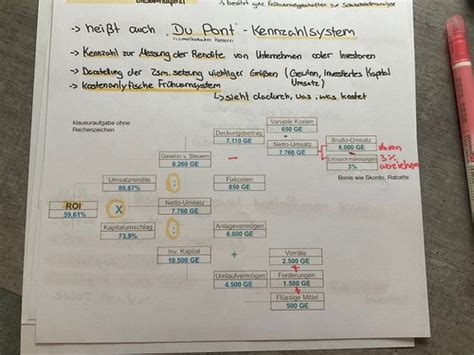 besitzt gute Frühwarneigenschaften zur Schwachstellenanalyse
-> heißt auch "Du Pont"-Kennzahlsystem
-> Kennzahl zur Messung der Rendite von Unternehmen oder Investoren
-> Darstellung der Zsm.setzung wichtiger Größen (Gewinn, Investiertes Kapital
Umsatz)
-> Kostenanalytische Frühwarnsystem
↳ sieht dadurch, was, was kostet
klausuraufgabe ohne
Rechenzeichen
Variable Kosten
650 GE
Deckungsbeitrag
7.110 GE
-
Brutto-Umsatz
8.000 GE
Netto-Umsatz
7.760 GE
Erlösschmälerungen
3%
davon
3%
abziehen
Boni wie Skonto, Rabatte
Gewinn v. Steuern
6.260 GE
-
Fixkosten
850 GE
Umsatzrendite
80,67%
:
Netto-Umsatz
7.760 GE
ROI
59,61%
X
Kapitalumschlag
73,9%
:
Anlagevermögen
6.000 GE
Inv. Kapital
10.500 GE
+
Umlaufvermögen
4.500 GE
Vorräte
2.500 GE
+
Forderungen
1.500 GE
+
Flüssige Mittel
500 GE